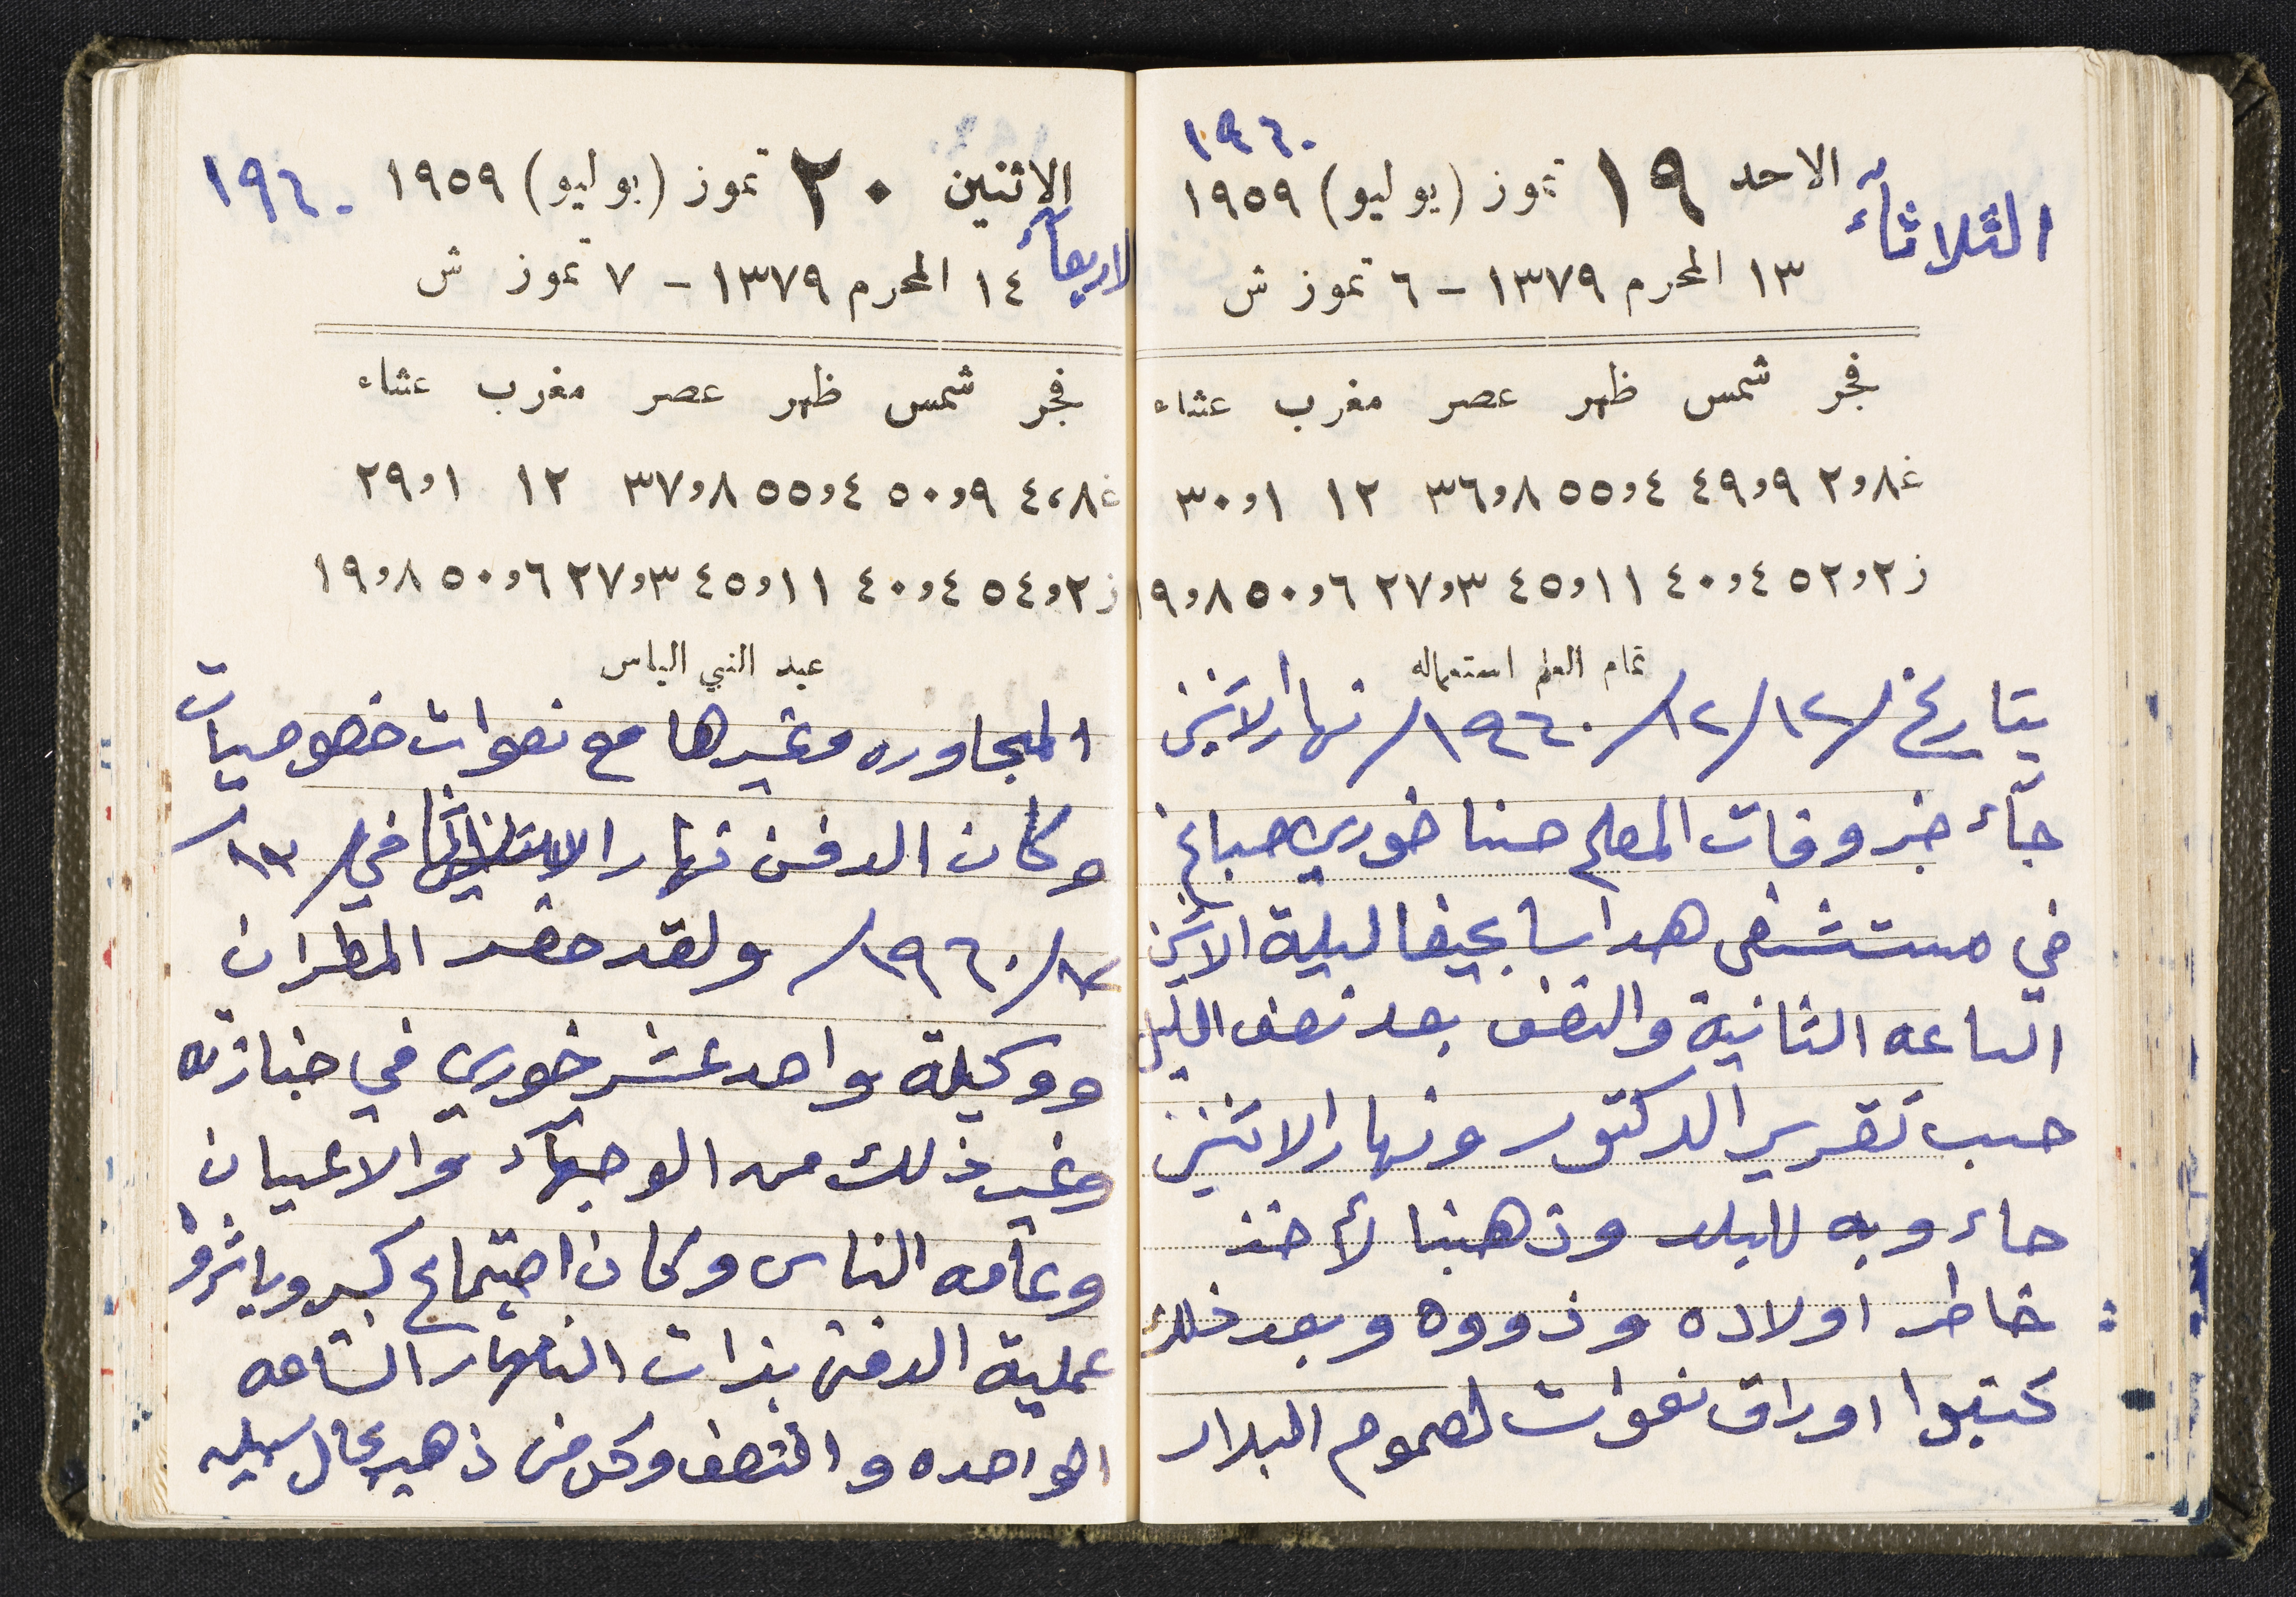 ١٩٦٠
الثلاثاء الاحد ١٩ تموز (يوليو) ١٩٥٩
١٣ المحرم ١٣٧٩ - ٦ تموز ش
فجر شمس ظهر عصر مغرب عشاء
غ ٨و٢ ٩و٤٩ ٤و٥٥ ٨و٣٦ ١٢ ١و٣٠
ز ٢و٥٢ ٤و٤٠ ١١و٤٥ ٣و٢٧ ٦و٥٠ ٨و١٩
تمام العلم استعماله
بتاريخ /١٢/١٢/١٩٦٠/ نهار الاثنين
جآء خبر وفات المعلم حنا خوري صباغ
في مستشفى هداسا بحيفا ليلة الاثنين
الساعه الثانية والنصف بعد نصف الليل
حسب تقرير الدكتور ونهار الاثنين
جاءو به للبلد وذهبنا لأخذ
خاطر اولاده وذووه وبعد ذلك
كتبوا اوراق نعوات لعموم البلاد
الاثنين ٢٠ تموز (يوليو) ١٩٥٩ ١٩٦٠
الاربعآء ١٤ المحرم ١٣٧٩ - ٧ تموز ش
فجر شمس ظهر عصر مغرب عشاء
غ ٨،٤ ٩و٥٠ ٤و٥٥ ٨و٣٧ ١٢ ١و٢٩
ز ٢و٥٤ ٤و٤٠ ١١و٤٥ ٣و٢٧ ٦و٥٠ ٨و١٩
عيد النبي الياس
المجاوره وغيرها مع نعوات خصوصيات
وكان الدفن نهار في /١٣
/١٢/١٩٦٠/ ولقد حضر المطران
ووكيلة واحد عشر خوري في جنازته
وغير ذلك من الوجهآء والاعيان
وعامه الناس وكان اجتماع كبير وباشروا
عملية الدفن بذات النهار الساعه
الواحده والنصف وكل من ذهب بحال سبيله